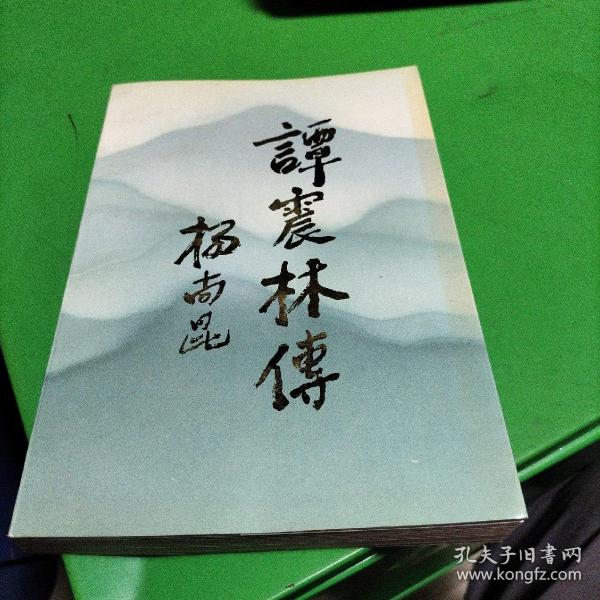 譚震林傳
杨尚昆
孔夫子旧书网
www.kongfz.com